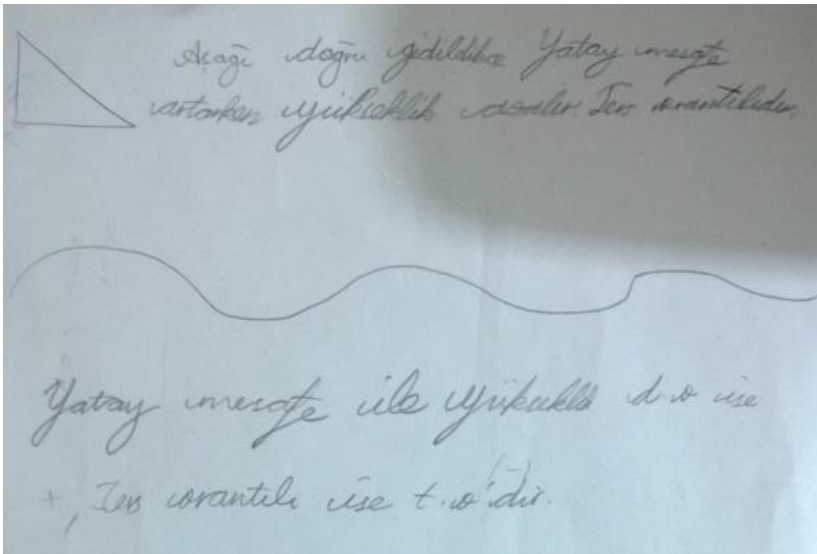 Aşağı doğru gidildikce Yatay mesafe
artarken yükseklik azalır. Ters orantılıdır.
Yatay mesafe ile yükseklik d.o ise
+, Ters orantılı ise t.o'dır.
(-)